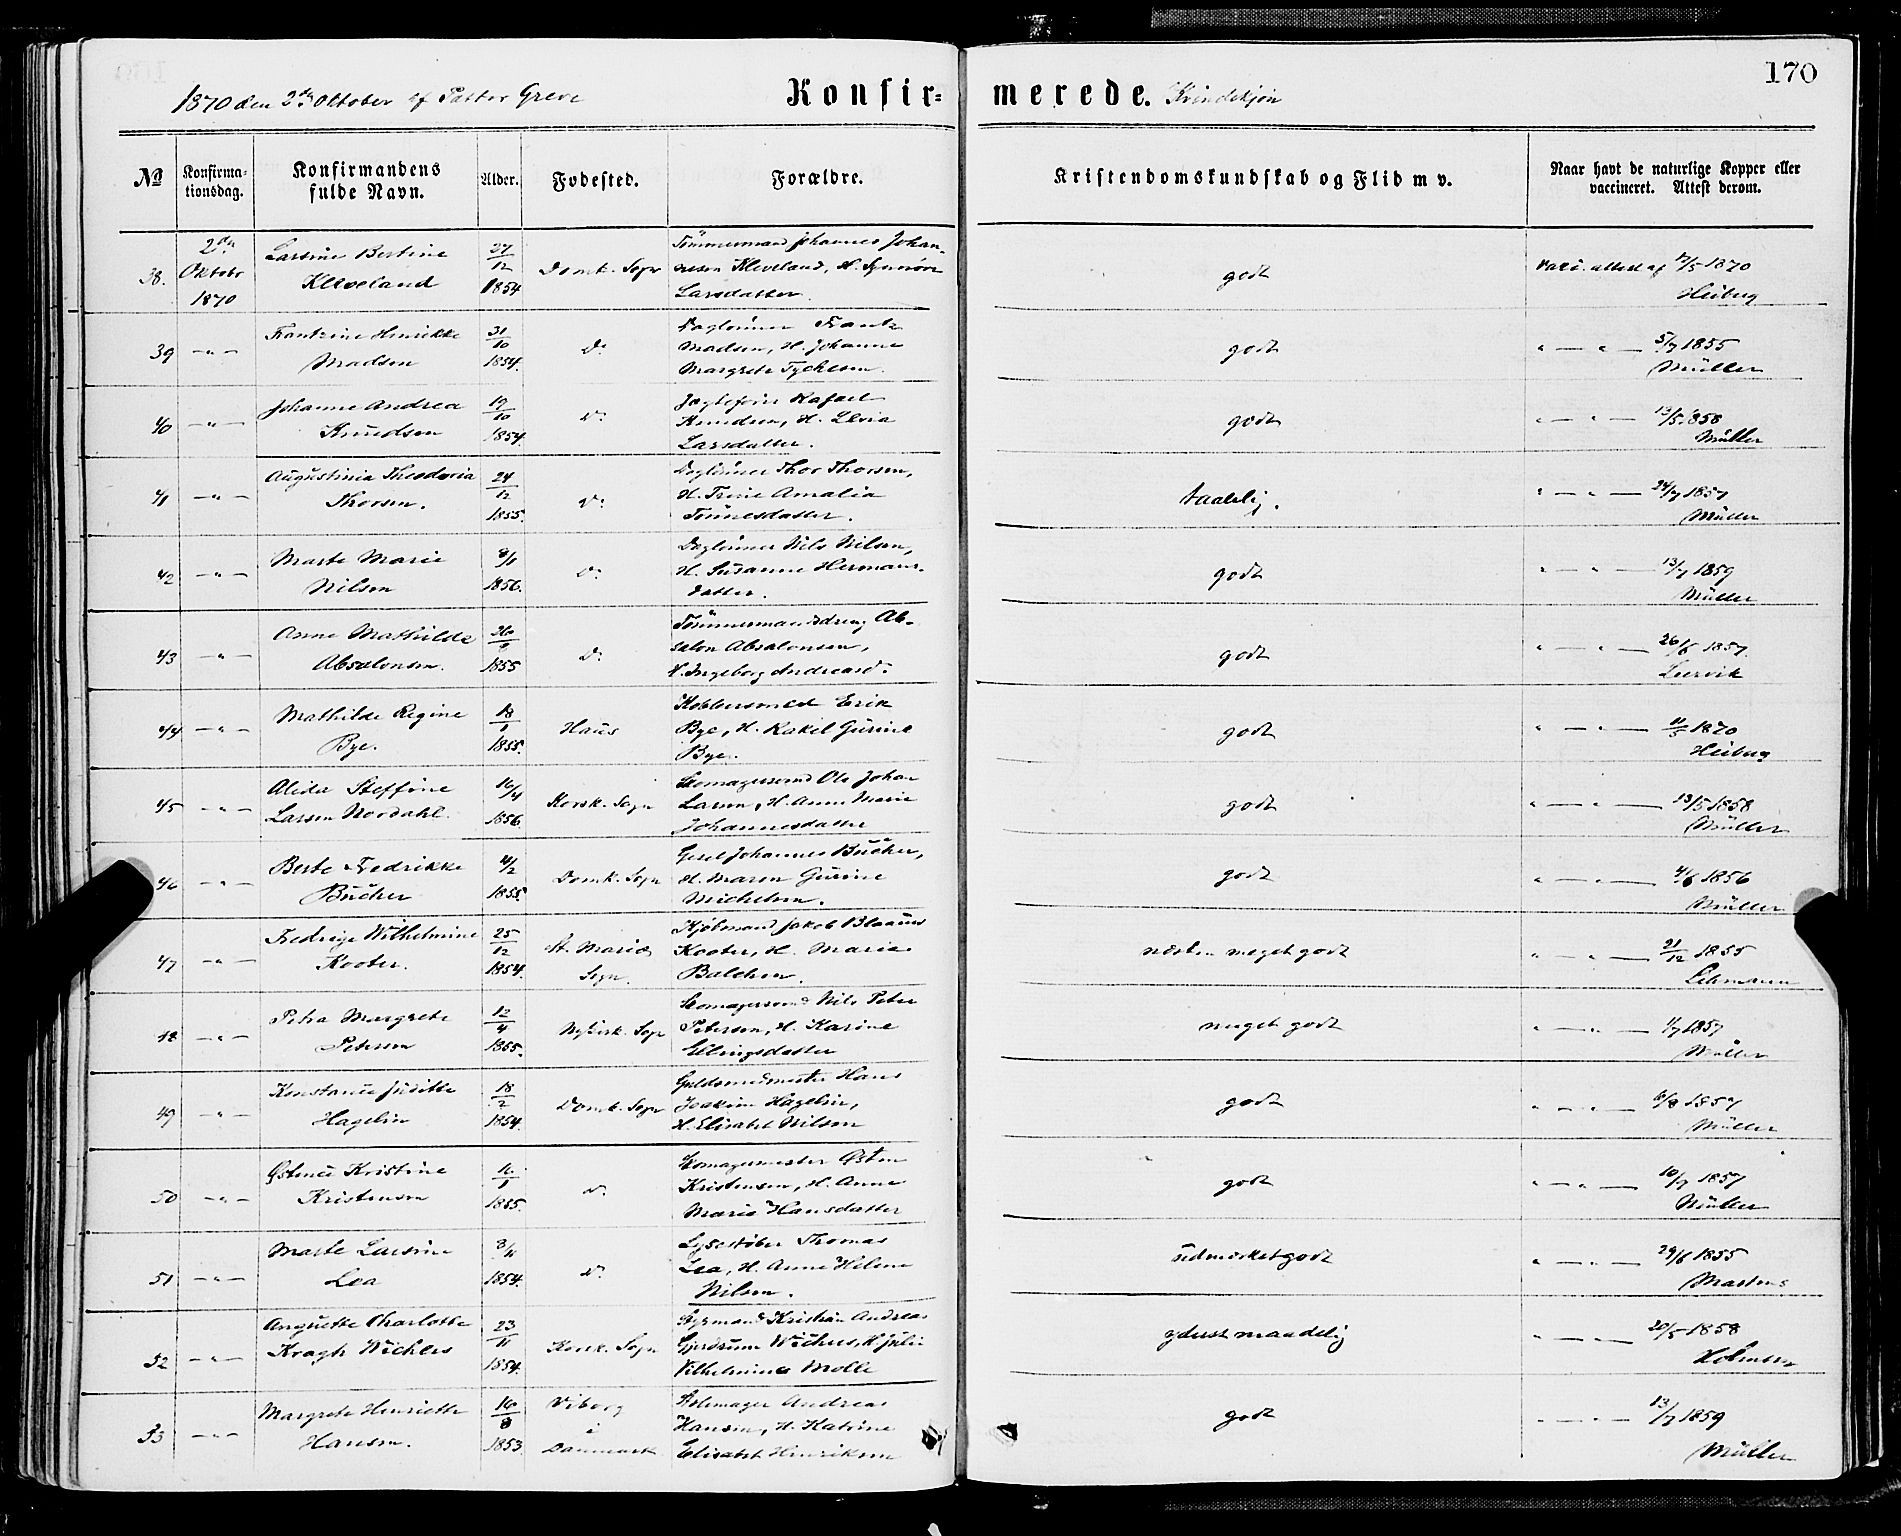 170
1870 den 2den Oktober af Pastor Greve
Konfir= merede. Kvindekjøn
No
Konfirma-
tionsdag.
Konfirmandens
fulde Navn.
Alder.
Fødested.
Forældre.
Kristendomskundskab og Flid m v.
Naar havt de naturlige Kopper eller
vaccineret. Attest derom.
38. 2den Oktobr 1870
Larsine Bertine
Kleveland
27/12 1854
Domk. Sogn
Tømmermand Johannes Johan-
nesen Kleveland, H. Synnøve
Larsdatter.
godt
Vacc. attest af 17/5 1870
Heiberg
39 -"-
Frantzine Henrikke
Madsen
31/10 1854.
Do
Daglønner Frantz
Madsen, H. Johanne
Margrete Tychesen.
godt
" — " — 5/7 1855
Müller
40 -"-
Johanne Andrea
Knudsen
19/10 1854.
Do
Jægtefører Rafael
Knudsen, H. Livia
Larsdatter.
godt
" — " — 13/5 1858
Müller
41 -"-
Augustinia Theodoria
Thorsen.
24/12 1855.
Do
Daglønner Thor Thorsen,
H. Trine Amalia
Tønnesdatter.
taalelig.
" — " — 24/7 1857
Müller
42 -"-
Marte Marie
Nilsen
8/1 1856.
Do
Daglønner Nils Nilsen,
H. Susanne Hermans-
datter.
godt
" — " — 13/7 1859
Müller
43 -"-
Anne Mathilde
Absalonsen.
1855
Do
Tømmermandsdreng Ab-
salon Absalonsen,
H. Ingeborg Andreasd.
godt
" — " — 26/6 1857.
Leervik
44 -"-
Mathilde Regine
Bye.
18/1 1855.
Haus
Kobbersmed Erik
Bye, H. Rakel Gurine
Bye.
godt
" — " — 11/5 1870
Heiberg
45 -"-
Alida Steffine
Larsen Nordahl.
16/4 1856.
Korsk. Sogn
Skomagersvend Ole Johan
Larsen, H. Anne Marie
Johannesdatter
godt
" — " — 13/5 1858
Müller
46 -"-
Berte Fredrikke
Bücher
4/2 1855.
Domk. Sogn
Gesel Johannes Bücher,
H. Maren Gurine
Michelsen.
godt
" — " — 4/6 1856
Müller
47 -"-
Fredrige Wilhelmine
Kooter.
25/12 1854.
St. Mariæ
Sogn.
Kjøbmand Jakob Blaauw
Kooter, H. Marie
Balchen.
næsten meget godt
" — " — 21/12 1855
Lehmann
48 -"-
Petra Margrete
Petersen
12/4 1855.
Nykirk. Sogn
Skomagersvend Nils Peter
Petersen, H. Karine
Ellingsdatter
meget godt
" — " — 1/7 1857
Müller
49 -"-
Konstance Juditte
Hagelin
18/2 1854.
Domk. Sogn
Guldsmedmester Hans
Joakim Hagelin,
H. Elisabet Nilsen
godt
" — " — 6/8 1857
Müller
50 -"-
Kristine
Kristensen
1855.
Do
Skomagermester Østen
Kristensen, H. Anne
Marie Hansdatter
godt
" — " — 10/7 1857
Müller
51 -"-
Marte Lursine
Lea
8/11 1854.
Do
Lysestøber Thomas
Lea, H. Anne Helene
Nilsen.
udmærket godt
" — " — 29/6 1855
Martens
52 -"-
Augusta Charlotte
Kragh Wichers
23/11 1854.
Korsk. Sogn
Kristian Andreas
Gjerdrum Wichers, H. Julie
Vilhelmine Molle
yderst maadelig
" — " — 20/5 1858
Holmsen
53 -"-
Margrete Henriette
Hansen.
16/8 1853
Viborg
i
Danmark
Stolemager Andreas
Hansen, H. Katrine
Elisabet Henriksen
godt
" — " — 13/7 1859
Müller